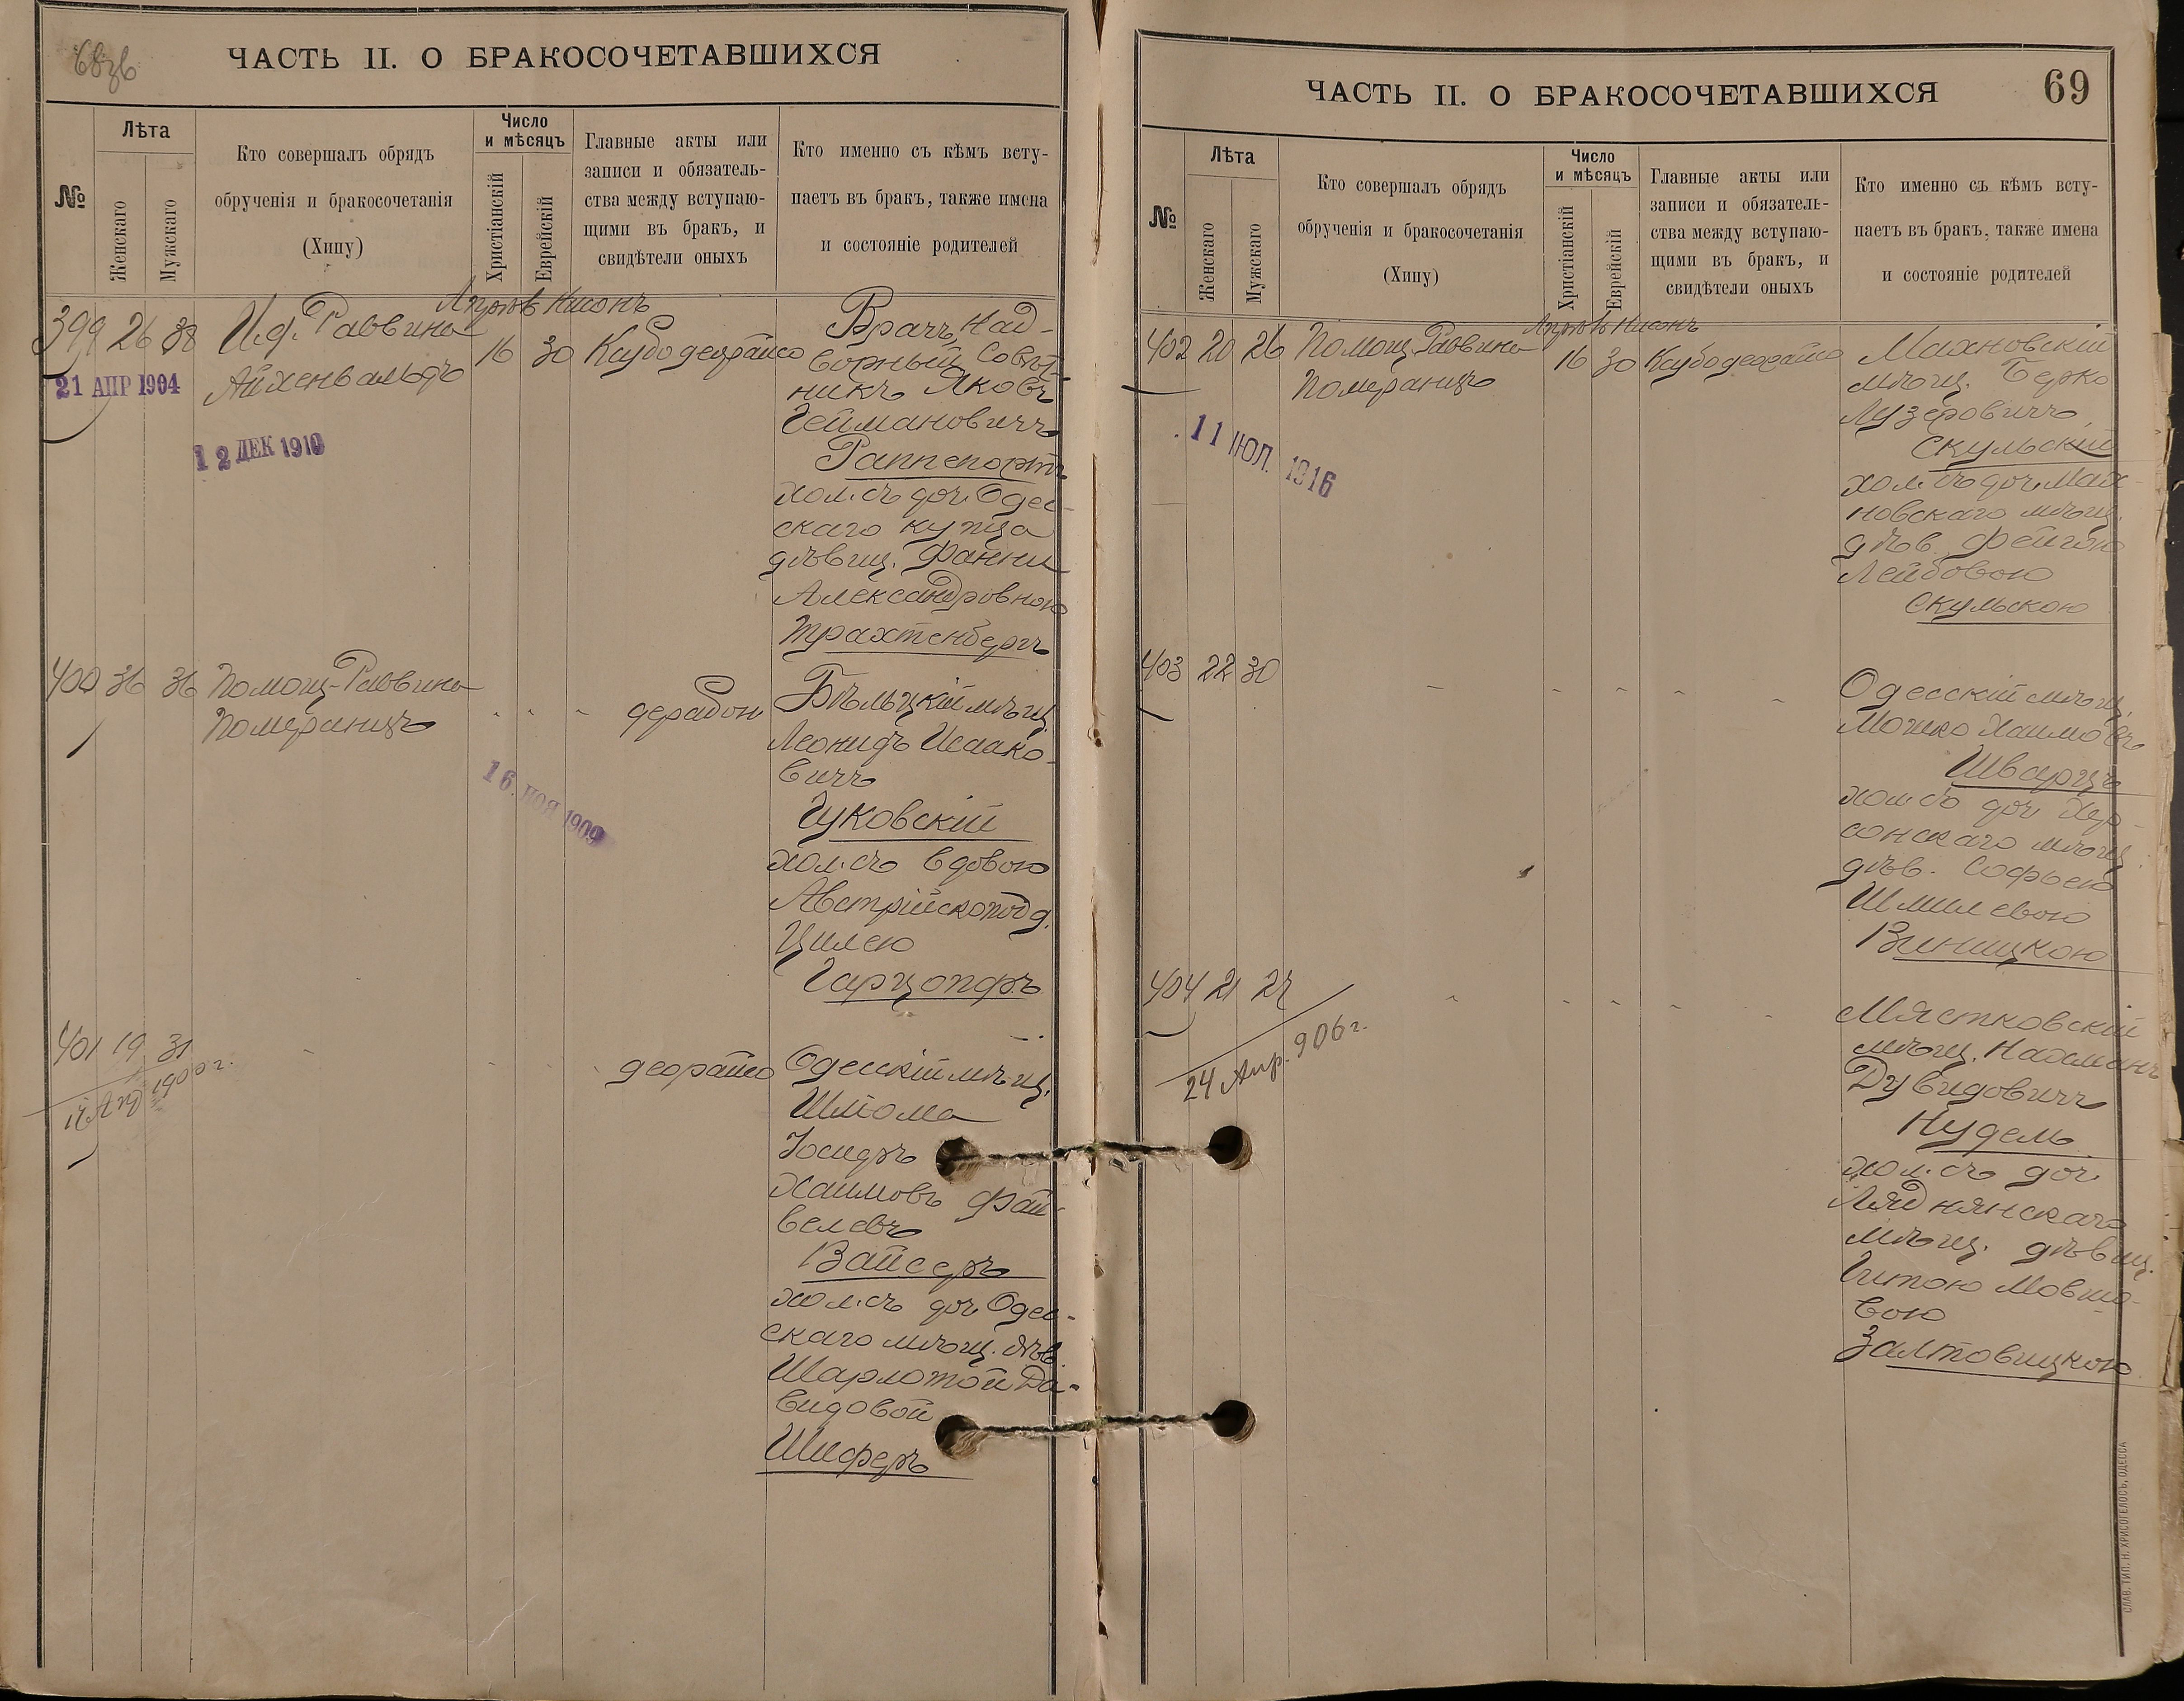 68зв
ЧАСТЬ II. О БРАКОСОЧЕТАВШИХСЯ
№
Лѣта
Женскаго
Мужскаго
Кто совершалъ обрядъ
обрученія и бракосочетанія
(Хипу)
Число
и мѣсяцъ
Христіанскій
Еврейскій
Главные акты или
записи и обязатель-
ства между вступаю-
щими въ бракъ, и
свидѣтели оныхъ
Кто именно съ кѣмъ всту-
паетъ въ бракъ, также имена
и состояніе родителей
Апрѣль Нисонъ
399 26 38 И.д. Раввина
Айхенвальдъ
16 30 Кцубо деорайсо
21 АПР 1904
12 ДЕК 1910
Врачъ, Над-
ворный Совѣт-
никъ Яковъ
Геймановичъ
Раппепортъ
хол. съ доч. Одес-
скаго купца
дѣвиц. Фанни
Александровною
Трахтенбергъ
400 36 36 Помощ. Раввина
Померанцъ
дерабон
16. НОЯ 1909
Бѣльцкій мѣщ.
Леонидъ Исаако-
вичъ
Гуковскій
хол. съ вдовою
Австрійскоподд.
Цилею
Гарцопфъ
401 19 31
1900 г.
деорайсо
Одесскій мѣщ.
Шліома
Іосифъ
Хаимовъ Фай-
велевъ
Вайсеръ
хол. съ доч. Одес-
скаго мѣщ. дѣв.
Шарлотой Да-
видовой
Шиферъ
ЧАСТЬ II. О БРАКОСОЧЕТАВШИХСЯ
69
№
Лѣта
Женскаго
Мужскаго
Кто совершалъ обрядъ
обрученія и бракосочетанія
(Хипу)
Число
и мѣсяцъ
Христіанскій
Еврейскій
Главные акты или
записи и обязатель-
ства между вступаю-
щими въ бракъ, и
свидѣтели оныхъ
Кто именно съ кѣмъ всту-
паетъ въ бракъ, также имена
и состояніе родителей
Апрѣль Нисонъ
402 20 26 Помощ. Раввина
Померанцъ
16 30 Кцубо деорайсо
11 ІЮЛ. 1916
Махновскій
мѣщ. Берко
Лузеровичъ
Скульскій
хол. съ доч. Мах-
новскаго мѣщ.
дѣв. Фейгою
Лейбовою
Скульскою
403 22 30
Одесскій мѣщ.
Мошко Хаимовъ
Шварцъ
хол. съ доч. Хер-
сонскаго мѣщ.
дѣв. Софьею
Шмилевою
Виницкою
404 21 27
24 Апр. 906 г.
Мястковскій
мѣщ. Нахманъ
Дувидовичъ
Нудель
хол. съ доч.
мѣщ. дѣвиц.
Гитою Мовшо-
вою
СЛАВ. ТИП. Н. ХРИСОГЕЛОСЪ, ОДЕССА